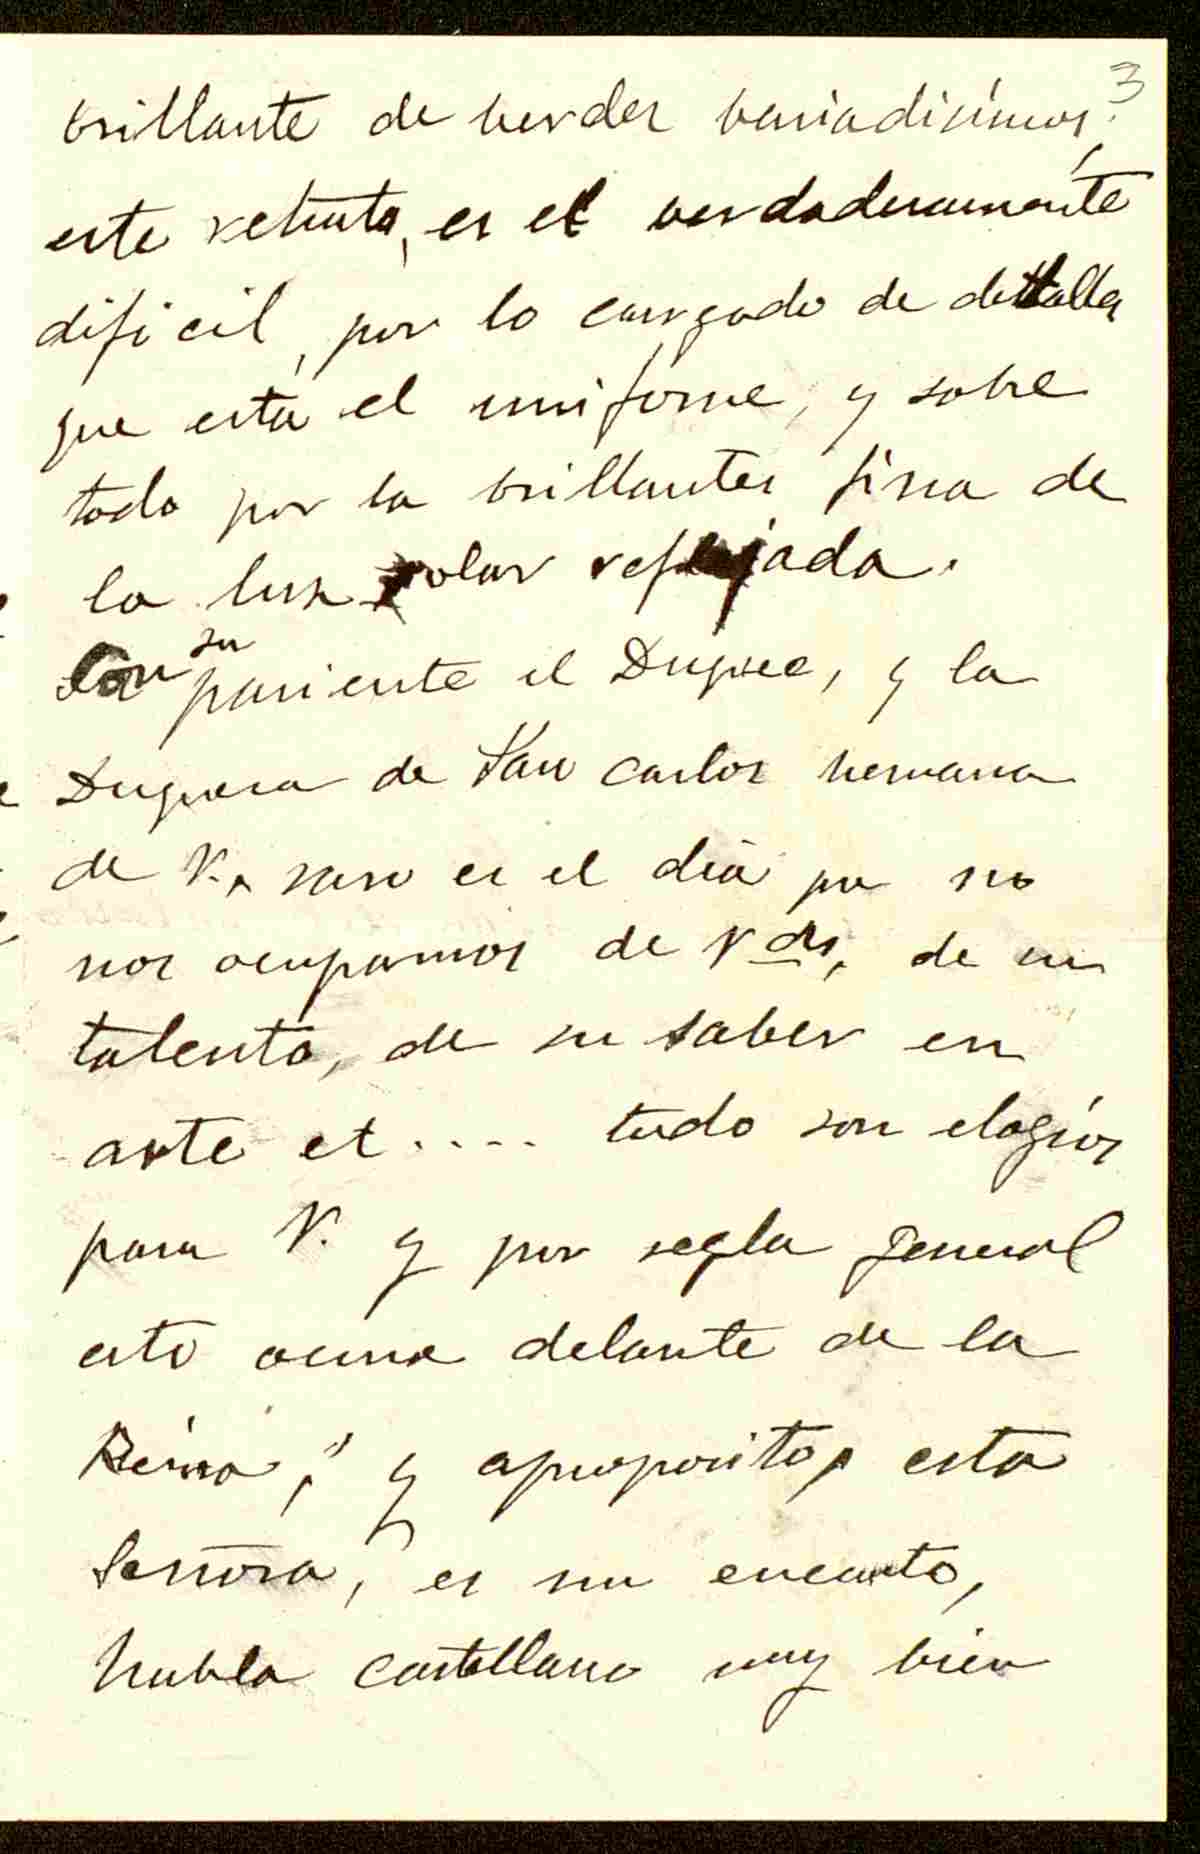 3
brillante de berdes bariadisimos,
este retrato, es el verdaderamente
dificil, por lo cargado de detalles
que está el uniforme, y sobre
todo por la brillantes fina de
la luz solar reflejada.
Con su pariente el Duque, y la
Duquesa de San Carlos hermana
de V., raro es el dia que no
nos ocupamos de Vds, de su
talento, de su saber en
arte et.... todo son elogios
para V. y por regla general
esto ocurre delante de la
Reina, y aproposito, esta
Señora, es un encanto,
habla castellano muy bien